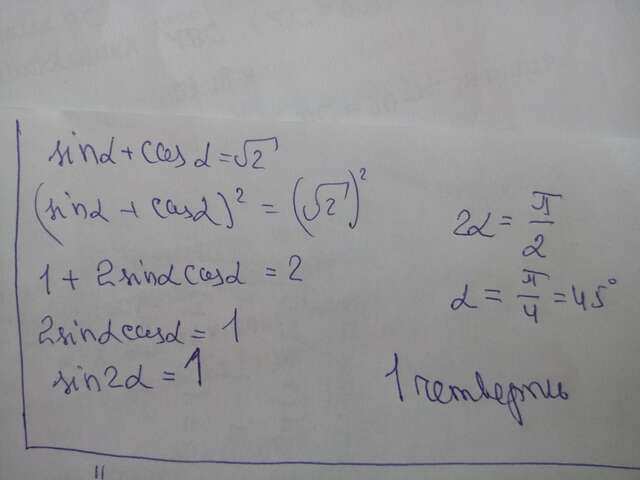 sinα + cosα = √2
(sinα + cosα)² = (√2)²
1 + 2sinαcosα = 2
2sinαcosα = 1
sin2α = 1
2α = π/2
α = π/4 = 45°
1 четверть